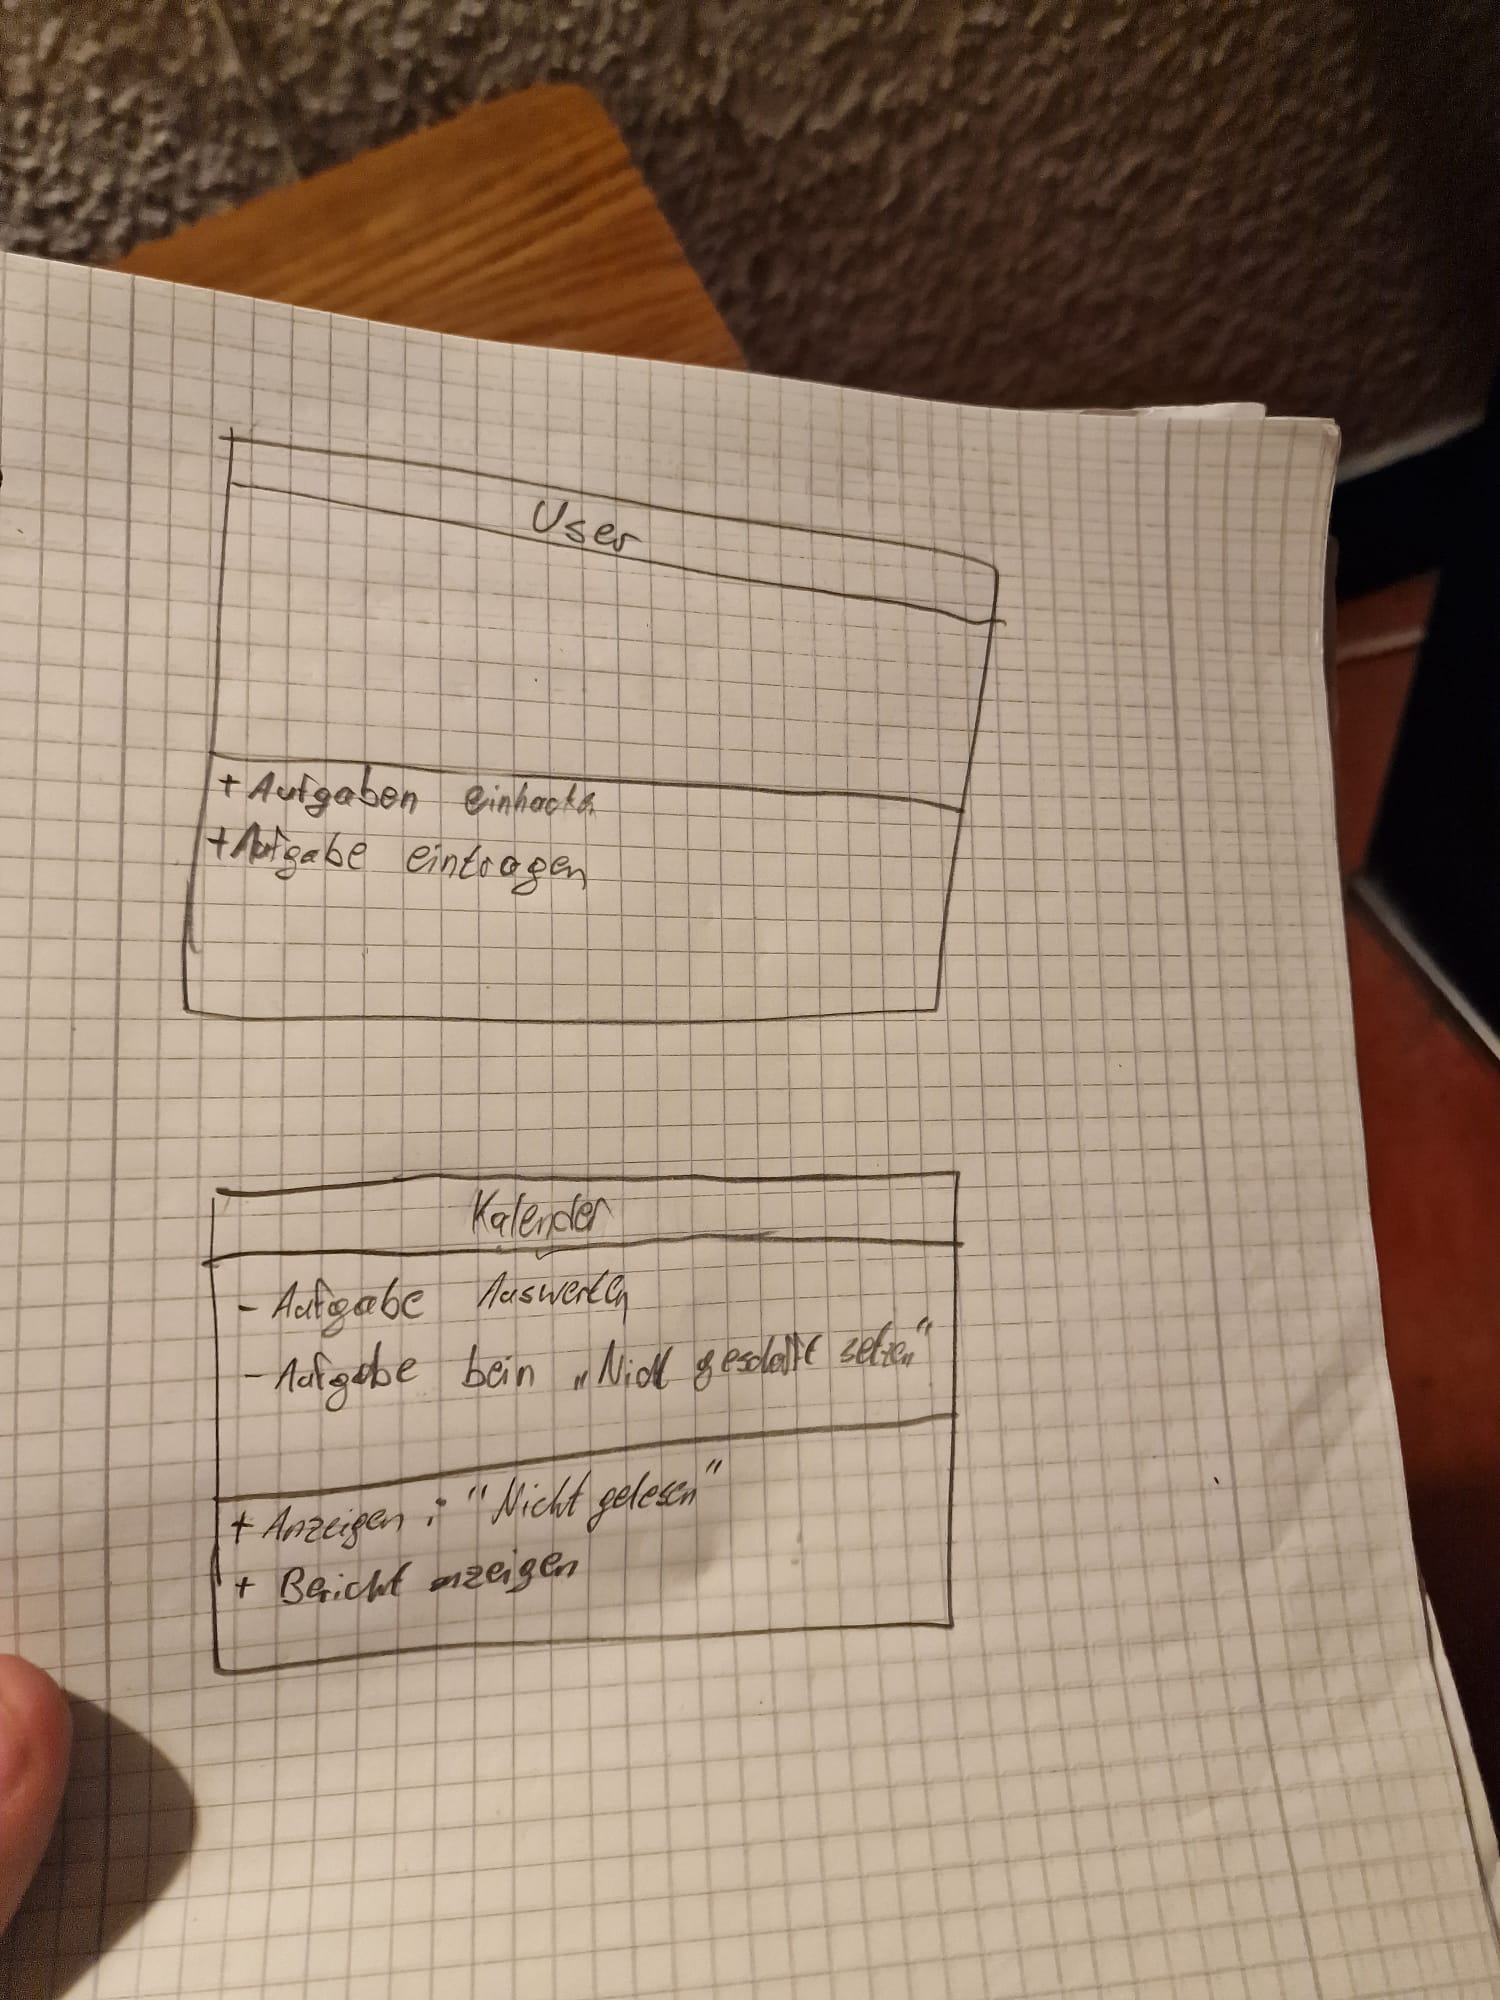 User
+ Aufgaben einhacken
+ Aufgabe eintragen
Kalender
- Aufgabe Auswerten
- Aufgabe bein „Nicht geschafft setzen“
+ Anzeigen : "Nicht gelesen"
+ Bericht anzeigen